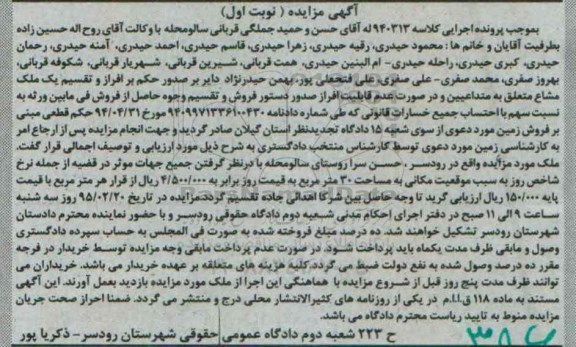 آگهی مزایده ( نوبت اول)
بموجب پرونده اجرایی کلاسه ۹۴۰۳۱۳ له آقای حسن و حمید جملگی قربانی سالومحله با وکالت آقای روح اله حسین زاده
بطرفیت آقایان و خانم ها : محمود حیدری، رقیه حیدری، زهرا حیدری، قاسم حیدری، احمد حیدری، آمنه حیدری، رحمان
حیدری، کبری حیدری، راحله حیدری- ام البنین حیدری، همت قربانی، شیرین قربانی، شهریار قربانی، شکوفه قربانی،
بهروز صفری، محمد صفری- علی صفری، علی فتحعلی پور، بهمن حیدرنژاد دایر بر صدور حکم بر افراز و تقسیم یک ملک
مشاع متعلق به متداعیین و در صورت عدم قابلیت افراز صدور دستور فروش و تقسیم وجوه حاصل از فروش فی مابین ورثه به
نسبت سهم با احتساب جمیع خسارات قانونی که طی شماره دادنامه ۹۴۰۹۹۷۱۳۳۶۱۰۰۴۳۰ مورخ ۹۴/۰۴/۳۱ حکم قطعی مبنی
بر فروش زمین مورد دعوی از سوی شعبه ۱۵ دادگاه تجدیدنظر استان گیلان صادر گردید و جهت انجام مزایده پس از ارجاع امر
به کارشناسی زمین مورد دعوی توسط کارشناس منتخب دادگستری به شرح ذیل مورد ارزیابی و توصیف اجمالی قرار گفت.
ملک مورد مزایده واقع در رودسر ، حسن سرا روستای سالومحله با درنظر گرفتن جمیع جهات موثر در قضیه از جمله نرخ
شاخص روز به سبب موقعیت مکانی به مساحت ۳۰ متر مربع به قیمت روز برابر به ۴/۵۰۰/۰۰۰ ریال از قرار هر متر مربع با قیمت
پایه ۱۵۰/۰۰۰ ریال ارزیابی گرید تا وجه حاصل بین شرکا اهدائی جاده تقسیم گردد. مزایده در تاریخ ۹۵/۰۲/۲۰ روز سه شنبه
ساعت ۹ الی ۱۱ صبح در دفتر اجرای احکام مدنی شعبه دوم دادگاه حقوقی رودسر و با حضور نماینده محترم دادستان
شهرستان رودسر تشکیل خواهند شد. ده درصد مبلغ فروخته شده به صورت فی المجلس به حساب سپرده دادگستری
وصول و مابقی ظرف مدت یکماه باید پرداخت شود. در صورت عدم پرداخت مابقی وجه مزایده توسط خریدار در فرجه
مقرر ده درصد وصول شده به نفع دولت ضبط می گردد. کلیه هزینه های متعلقه بر عهده خریدار می باشد. خریداران می
توانند ظرف مدت پنج روز قبل از شروع مزایده با هماهنگی این اجرا از ملک مورد مزایده بازدید بعمل آورند. این آگهی
مستند به ماده ۱۱۸ ق.ا.ا.م در یکی از روزنامه های کثیرالانتشار محلی درج و منتشر می گردد. ضمنا احراز صحت جریان
مزایده منوط به تایید ریاست محترم دادگاه می باشد.
ح ۲۲۳ شعبه دوم دادگاه عمومی حقوقی شهرستان رودسر- ذکریا پور